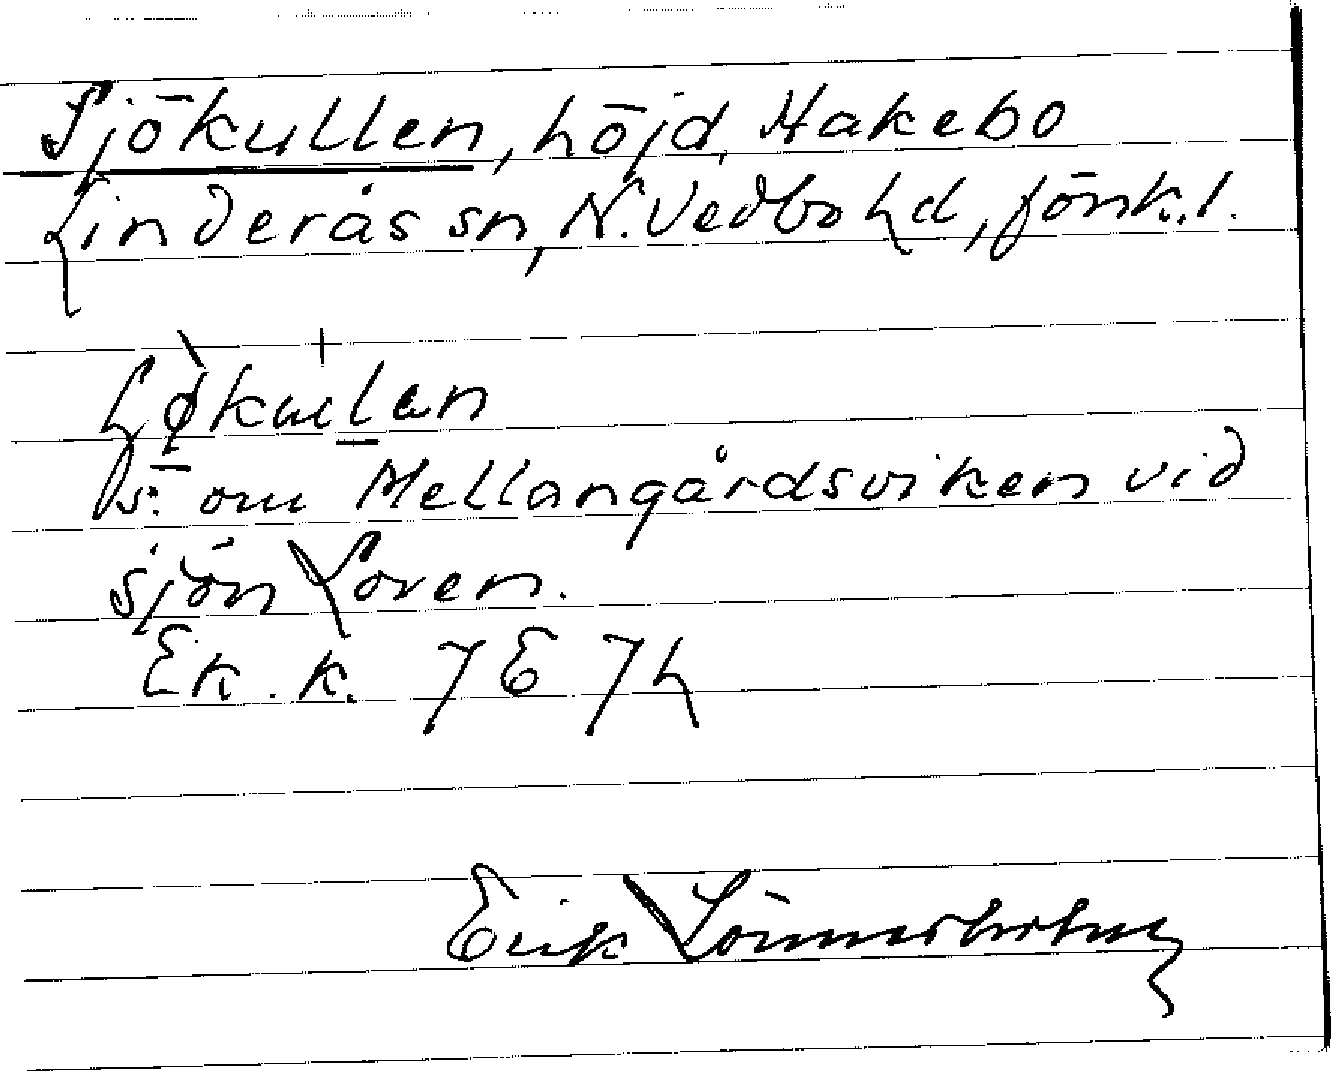 Sjökullen, höjd, Hakebo
Linderås sn, N. Vedbo hd, Jönk. l.
s. om Mellangårdsviken vid
sjön Loren.
Ek. k. 7E 7h
Erik Lönnerholm